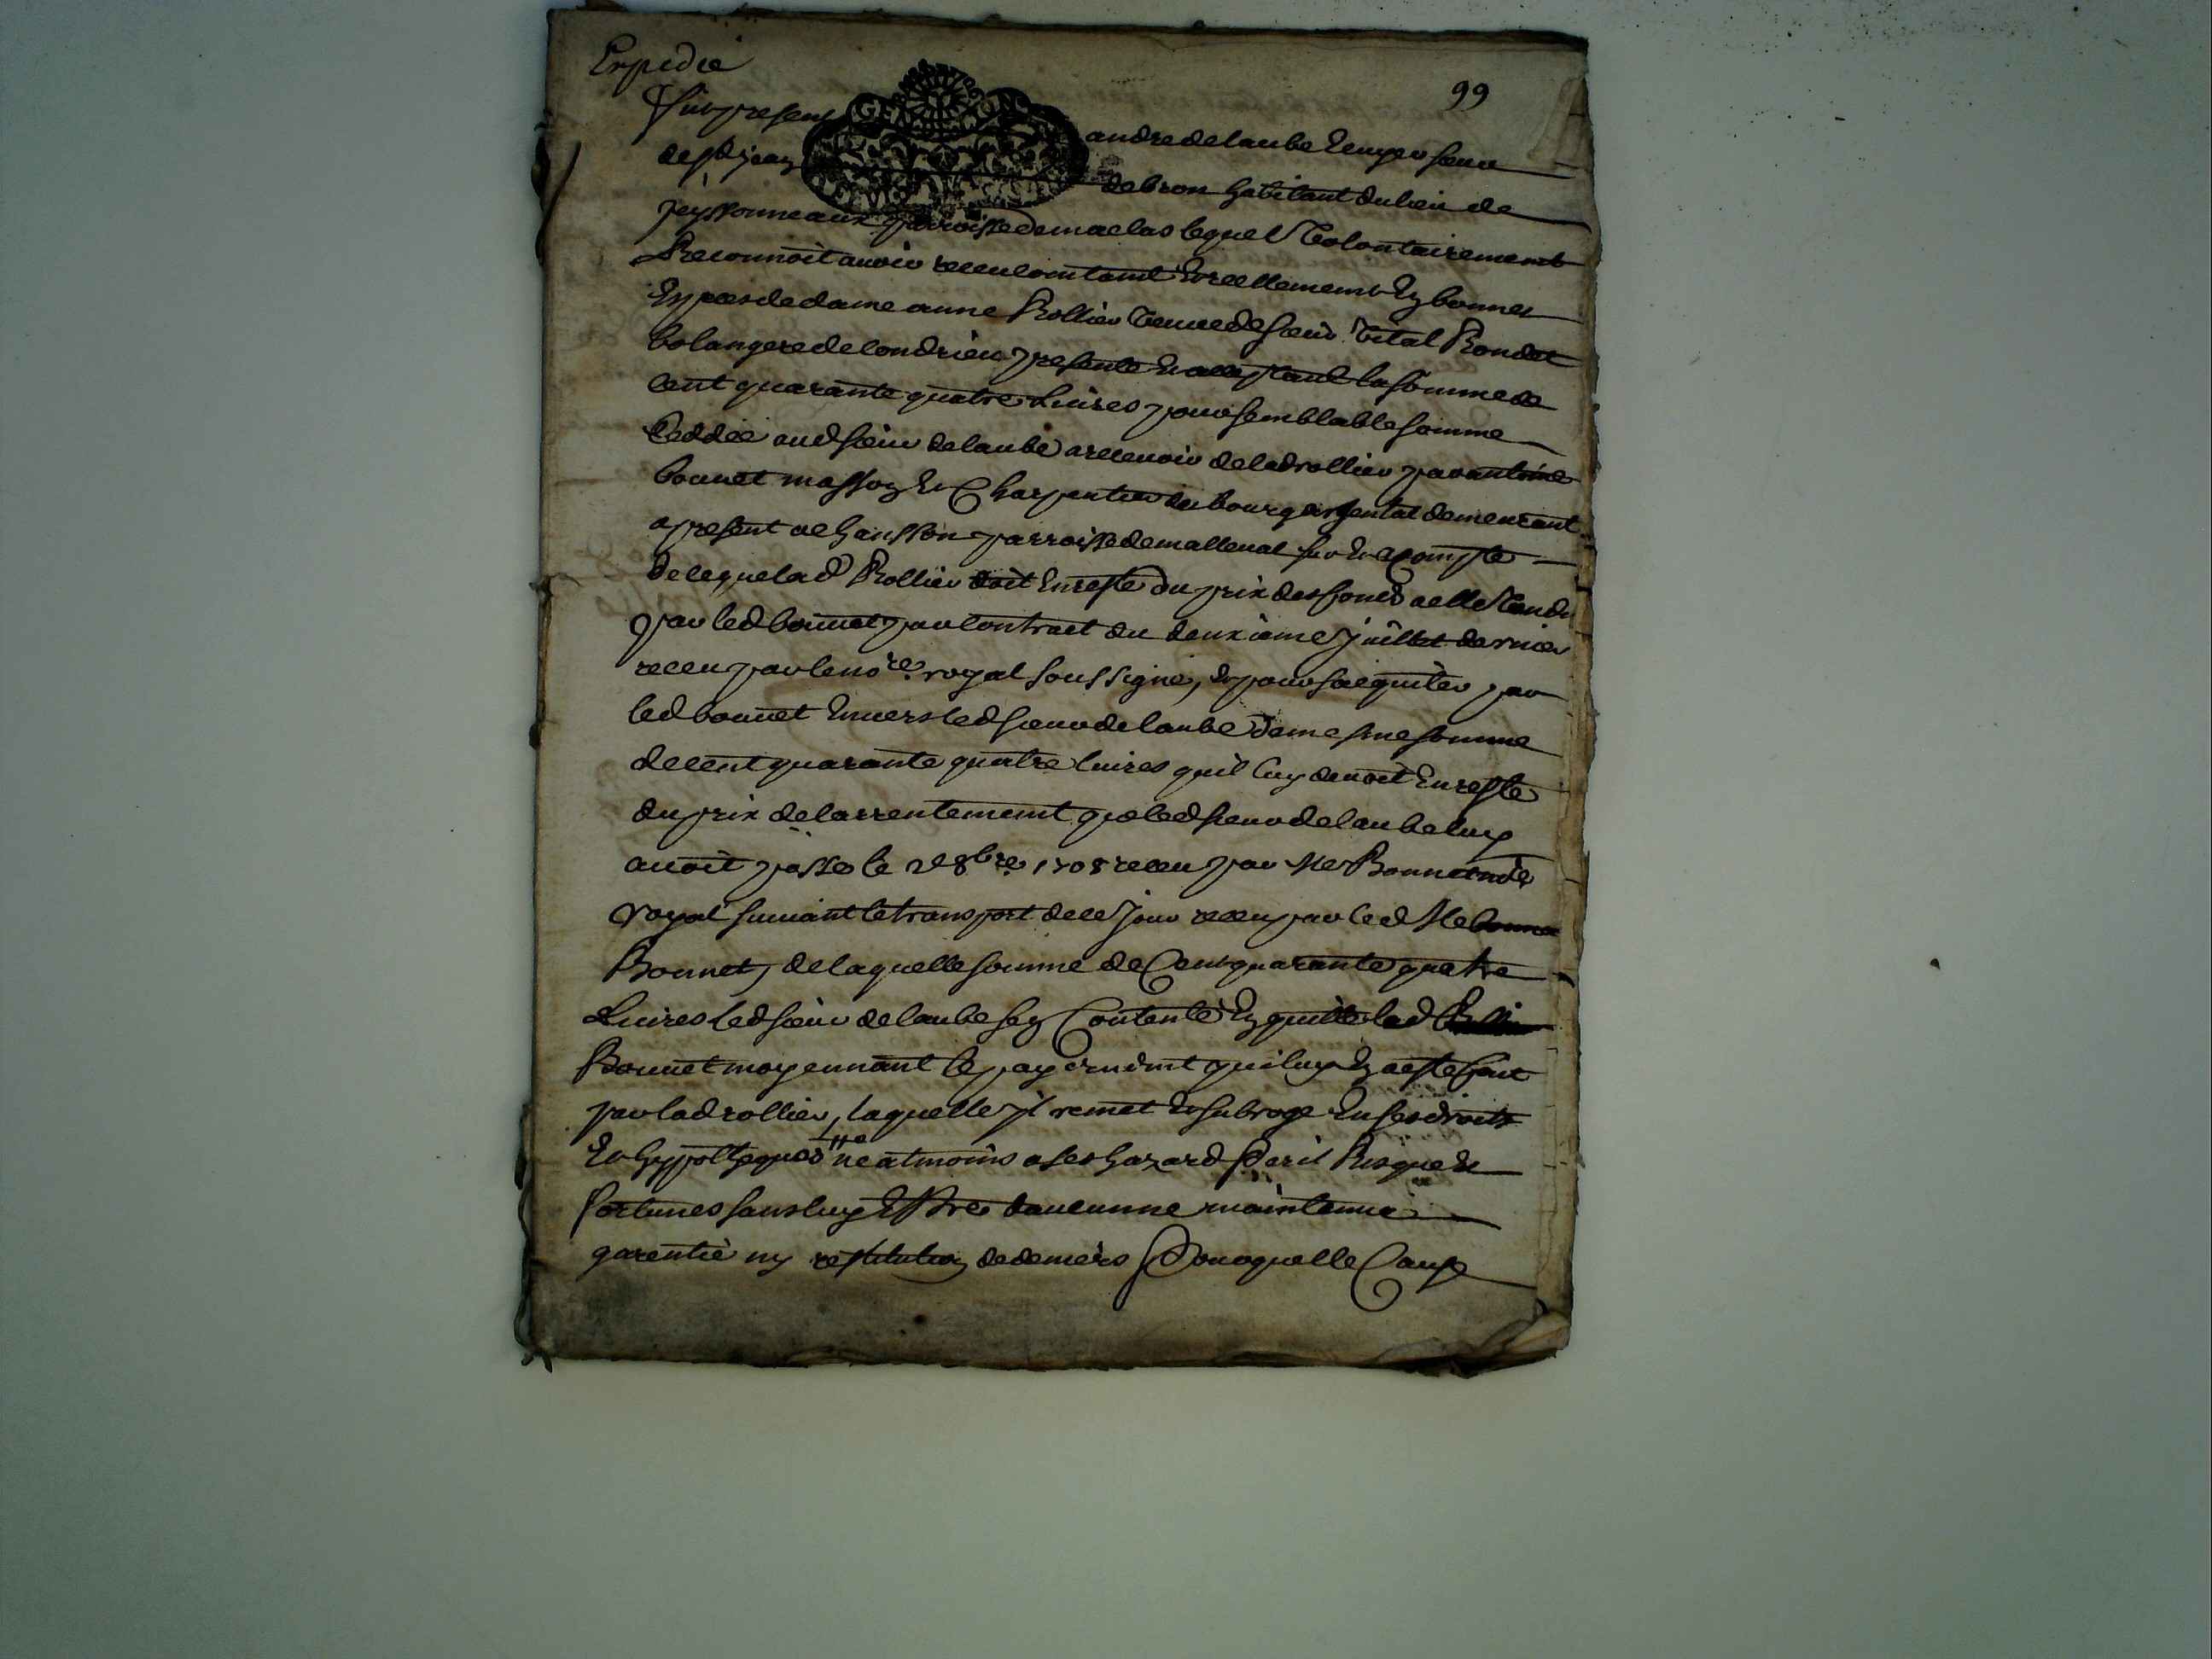 Expedié
99
Fut present andre delaube Ecuyer sieur
de St jean debron habitant du lieu de
peyssonneaux parroisse de maclas lequel volontairement
Reconnoit avoir receu contant & reellement En bonnes
Especes de dame anne Rollier veuve de sieur vital Rondet
bolangere de condrieu presente & acceptant la somme de
cent quarante quatre Livres pour semblable somme
Ceddée aud sieur delaube a recevoir de lad rollier par antoine
bonnet masson & Charpentier du bourg argental demeurant
apresent a chansson parroisse de malleval sur & acompte
de ce que lad Rollier doit En reste du prix des fonds a elle vendu
par led bonnet par contract du deuxieme juillet dernier
receu par le nore royal soussigné, & pour saquiter par
led bonnet Envers led sieur delaube de mesme somme
de cent quarante quatre livres quil luy devoit En reste
du prix de larrentement que led sieur delaube luy
avoit passé le 8bre 1708 receu par Me Bonnet nore
royal suivant le transport de ce jour receu par led Me
Bonnet, de laquelle somme de Cent quarante quatre
Livres led sieur delaube sen Contente En quitte led
Bonnet moyennant le payement qui luy En a esté fait
par lad rollier, laquelle il remet & subroge En ses droits
& hypotheques neatmoins a ses hazard Peril Risque &
fortunes sans luy Estre daucunne maintenue
garentie ny restitution de deniers Pour quelle Cause